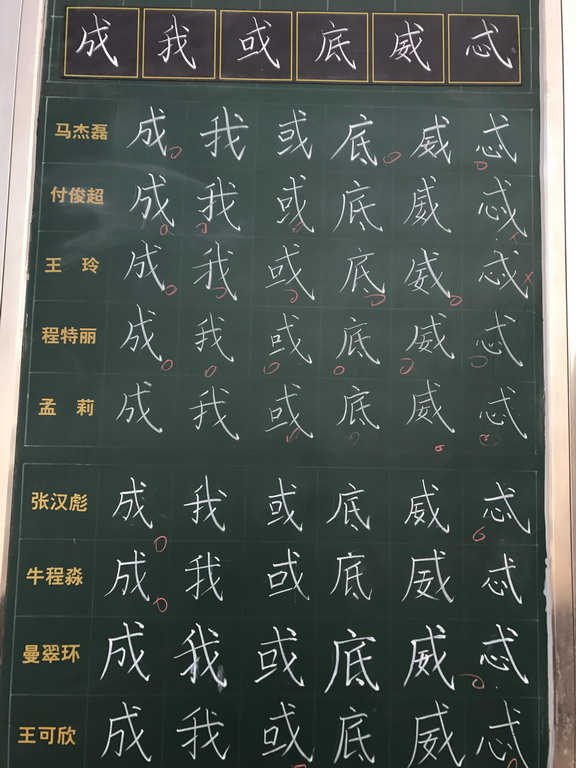 成 我 或 底 威 忒
马杰磊 成 我 或 底 威 忒
付俊超 成 我 或 底 威 忒
王 玲 成 我 或 底 威 忒
程特丽 成 我 或 底 威 忒
孟 莉 成 我 或 底 威 忒
张汉彪 成 我 或 底 威 忒
牛程淼 成 我 或 底 威 忒
曼翠环 成 我 或 底 威 忒
王可欣 成 我 或 底 威 忒